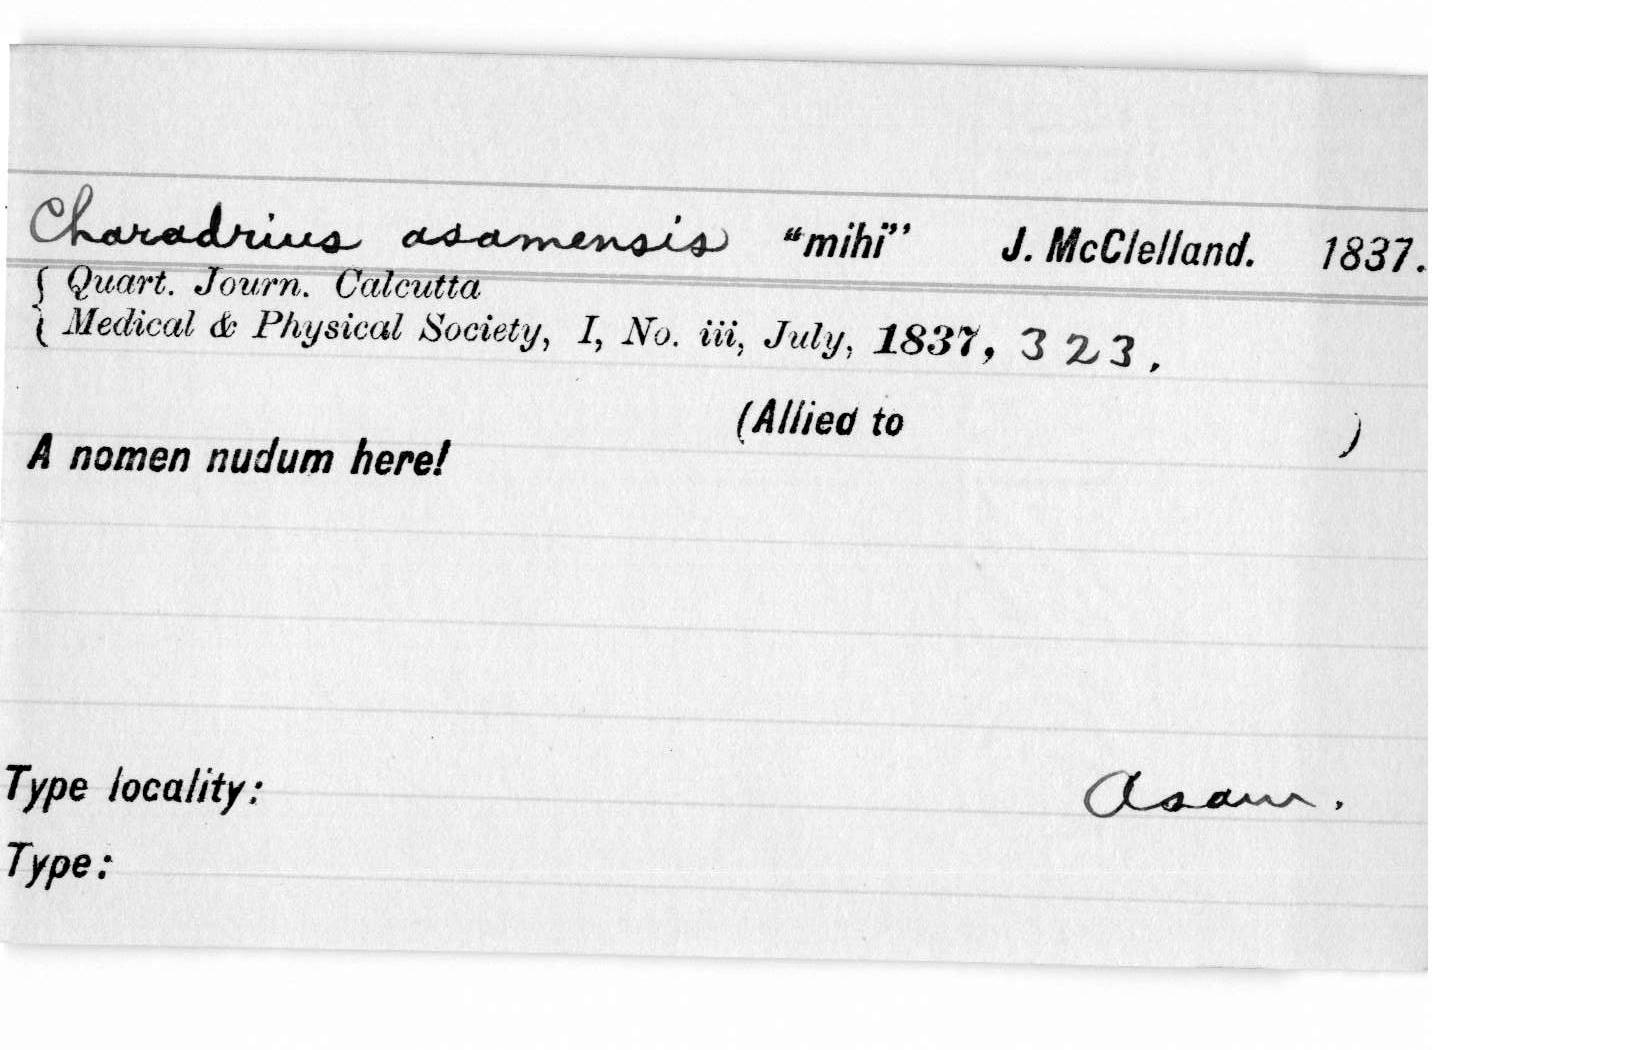 Charadrius asamensis “mihi” J. McClelland. 1837.
{ Quart. Journ. Calcutta
{ Medical & Physical Society, I, No. iii, July, 1837, 323.
(Allied to )
A nomen nudum here!
Type locality: Asam.
Type: